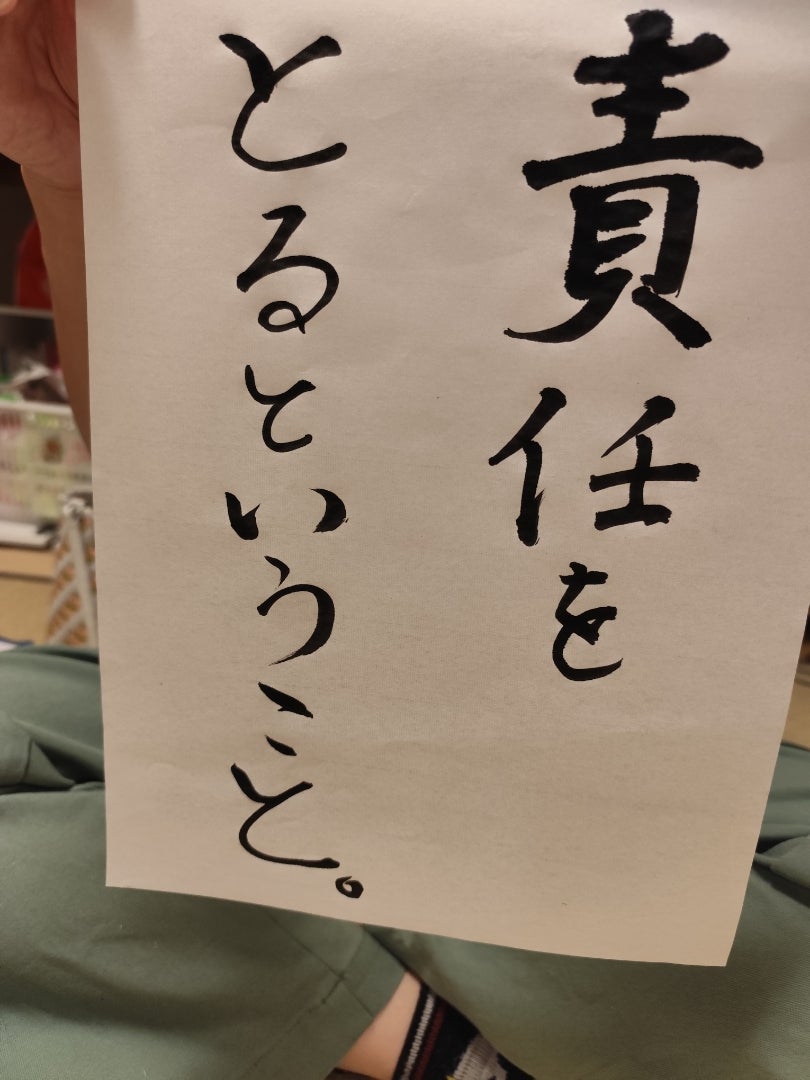 責任を
とるということ。